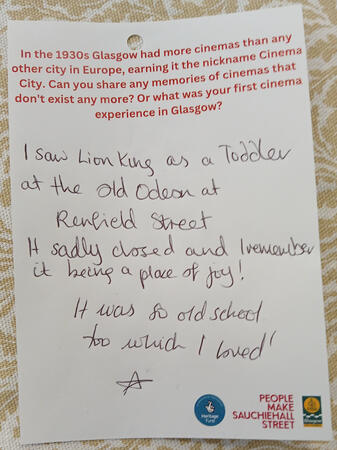 In the 1930s Glasgow had more cinemas than any
other city in Europe, earning it the nickname Cinema
City. Can you share any memories of cinemas that
don't exist any more? Or what was your first cinema
experience in Glasgow?
I saw Lion King as a Toddler
at the old Odeon at
Renfield Street
It sadly closed and I remember
it being a place of joy!
It was so old school
too which I loved!
Heritage
Fund
PEOPLE
MAKE
SAUCHIEHALL
STREET